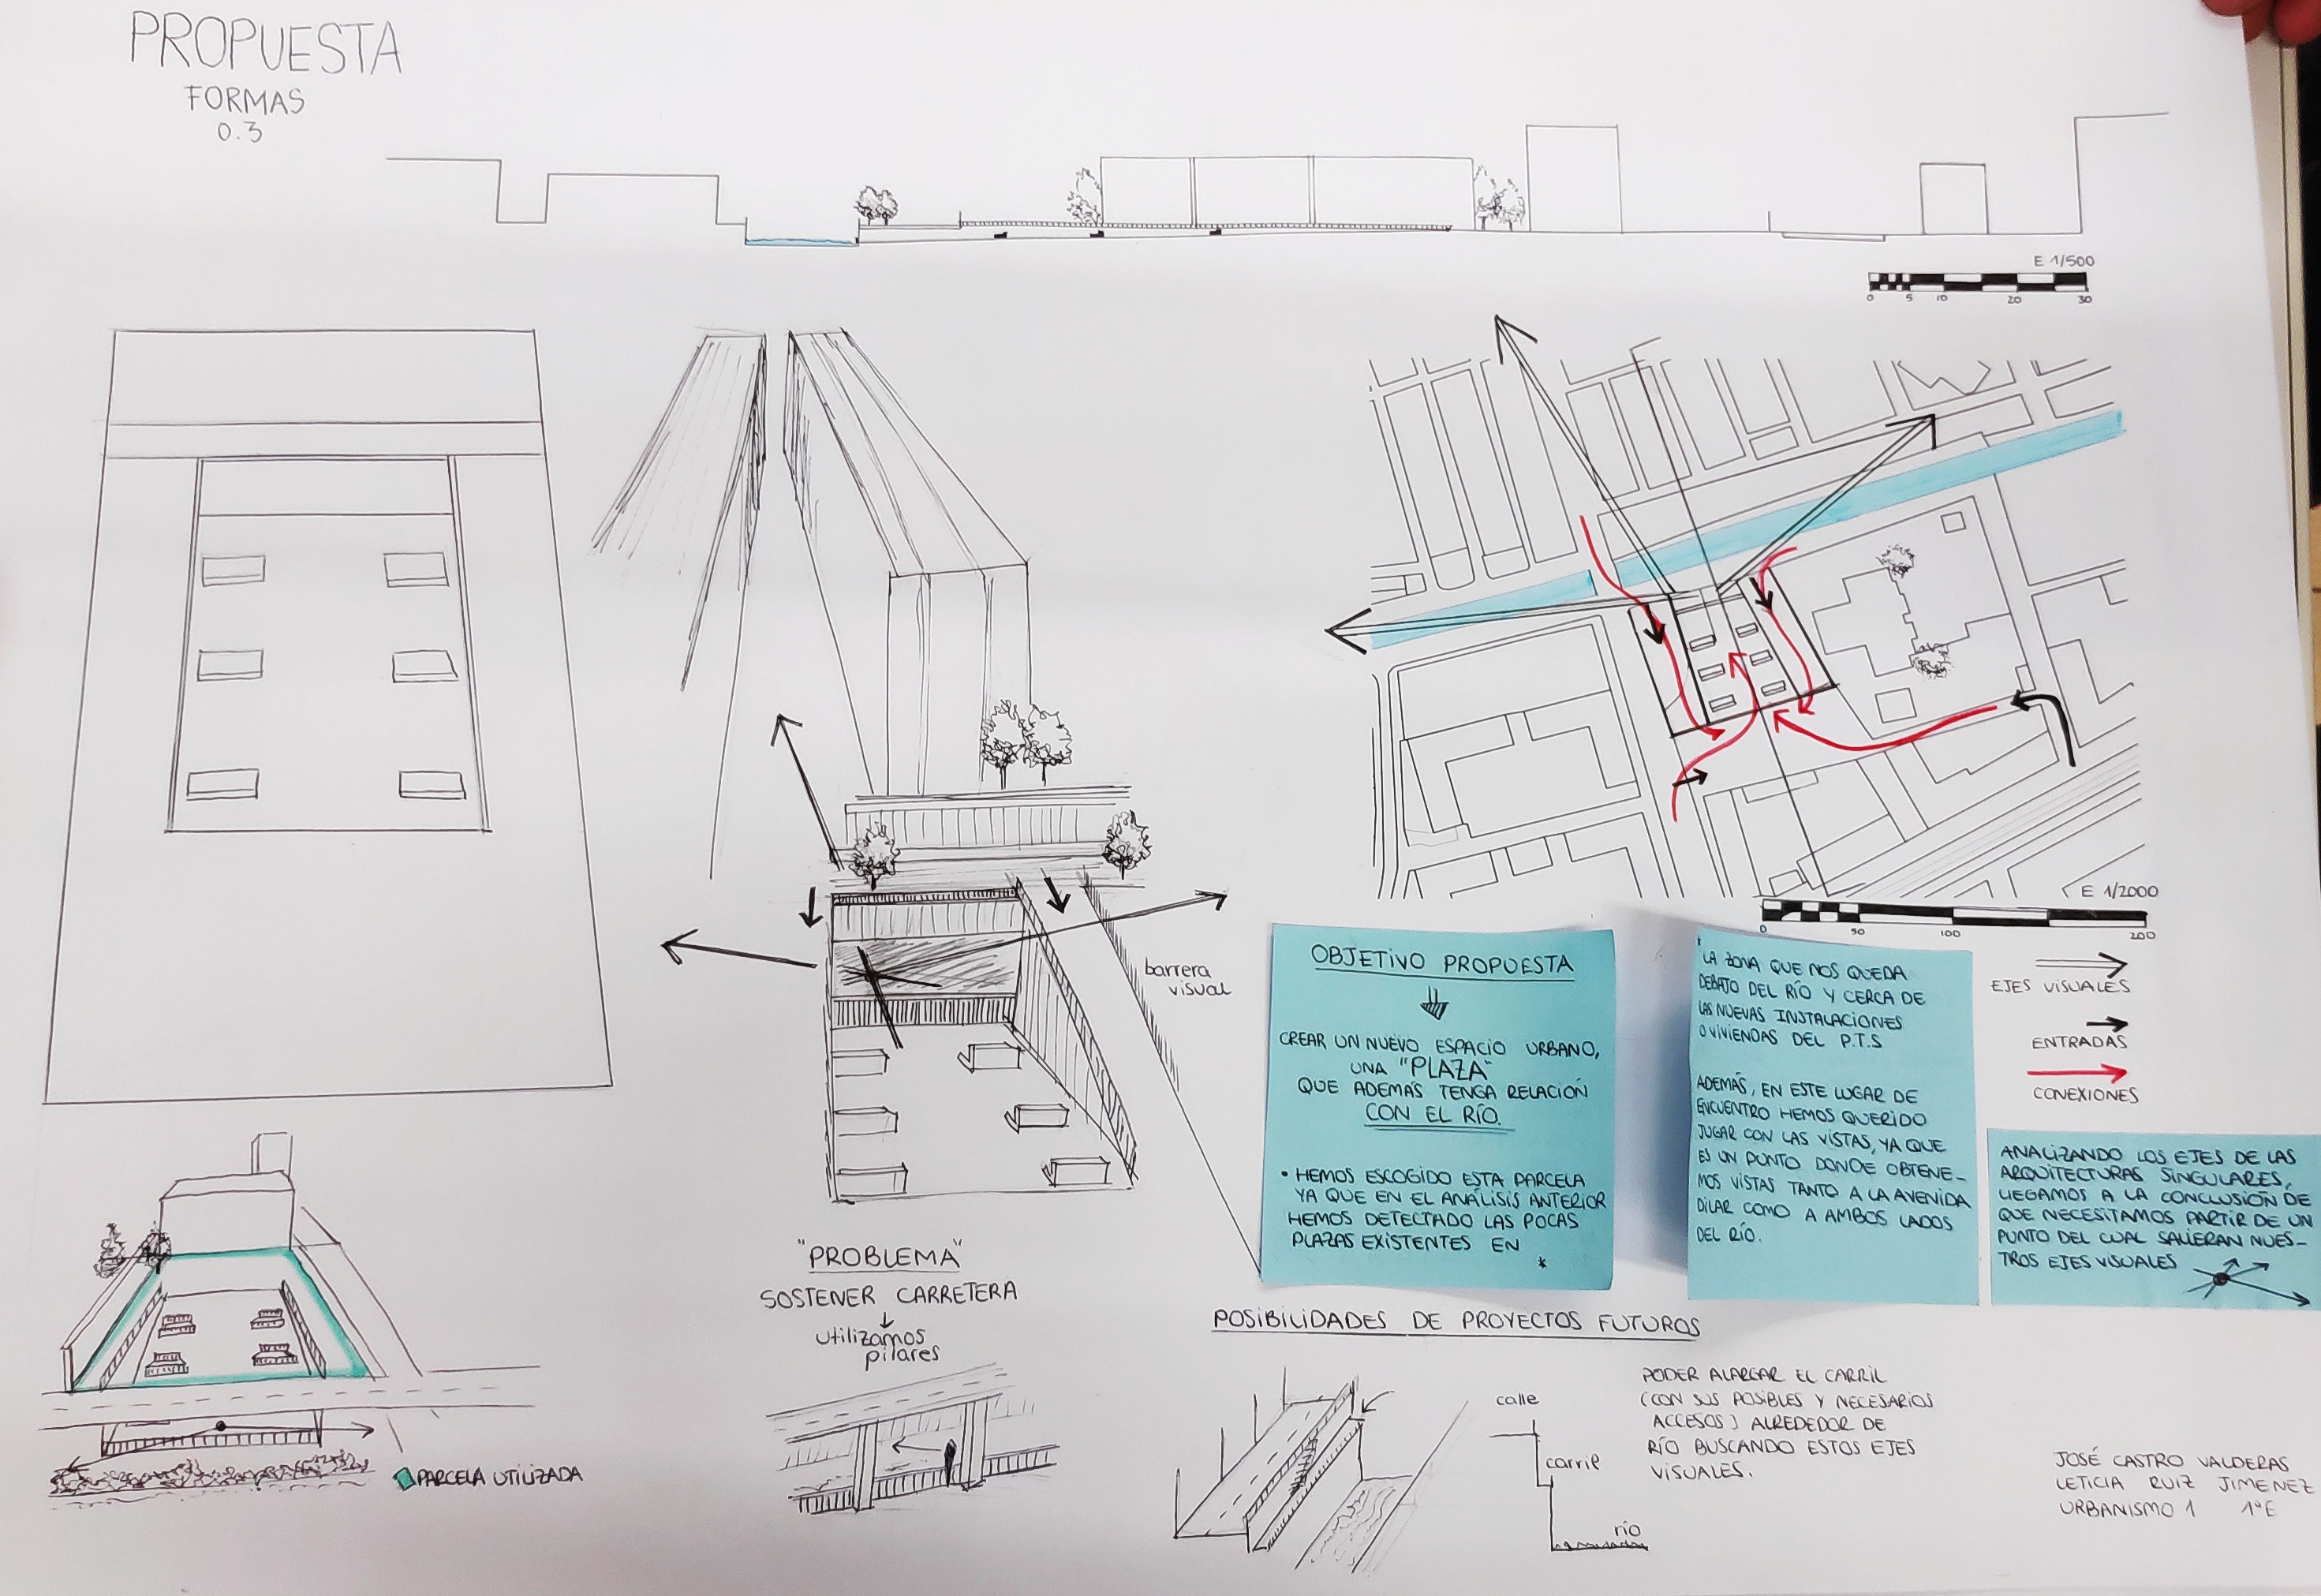 PROPUESTA
FORMAS
0.3
E 1/500
0 5 10 20 30
E 1/2000
0 50 100 200
EJES VISUALES
ENTRADAS
CONEXIONES
barrera
visual
OBJETIVO PROPUESTA
CREAR UN NUEVO ESPACIO URBANO,
UNA "PLAZA"
QUE ADEMÁS TENGA RELACIÓN
CON EL RÍO.
• HEMOS ESCOGIDO ESTA PARCELA
YA QUE EN EL ANÁLISIS ANTERIOR
HEMOS DETECTADO LAS POCAS
PLAZAS EXISTENTES EN
*
* LA ZONA QUE NOS QUEDA
DEBAJO DEL RÍO Y CERCA DE
LAS NUEVAS INSTALACIONES
O VIVIENDAS DEL P.T.S
ADEMÁS, EN ESTE LUGAR DE
ENCUENTRO HEMOS QUERIDO
JUGAR CON LAS VISTAS, YA QUE
ES UN PUNTO DONDE OBTENE-
MOS VISTAS TANTO A LA AVENIDA
DILAR COMO A AMBOS LADOS
DEL RÍO.
ANALIZANDO LOS EJES DE LAS
ARQUITECTURAS SINGULARES,
LLEGAMOS A LA CONCLUSIÓN DE
QUE NECESITAMOS PARTIR DE UN
PUNTO DEL CUAL SALIERAN NUES-
TROS EJES VISUALES
PARCELA UTILIZADA
"PROBLEMA"
SOSTENER CARRETERA
utilizamos
pilares
POSIBILIDADES DE PROYECTOS FUTUROS
calle
carril
río
PODER ALARGAR EL CARRIL
(CON SUS POSIBLES Y NECESARIOS
ACCESOS) ALREDEDOR DE
RÍO BUSCANDO ESTOS EJES
VISUALES.
JOSÉ CASTRO VALDERAS
LETICIA RUIZ JIMENEZ
URBANISMO 1 1ºE